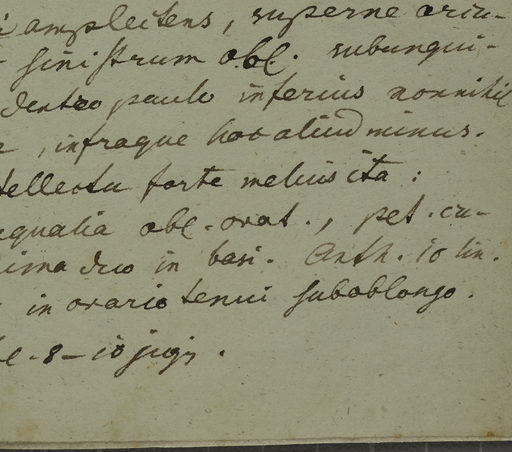 amplectens, superne oriu-
sinistrum obl. subungui-
dentes paulo inferius nonnihil
, infraque hos aliud minus.
tellectu forte melius ita :
equalia obl.-ovat., pet. cu-
ima duo in basi. Anth. 10 lin.
in ovario tenui suboblongo.
8-10 jugis.